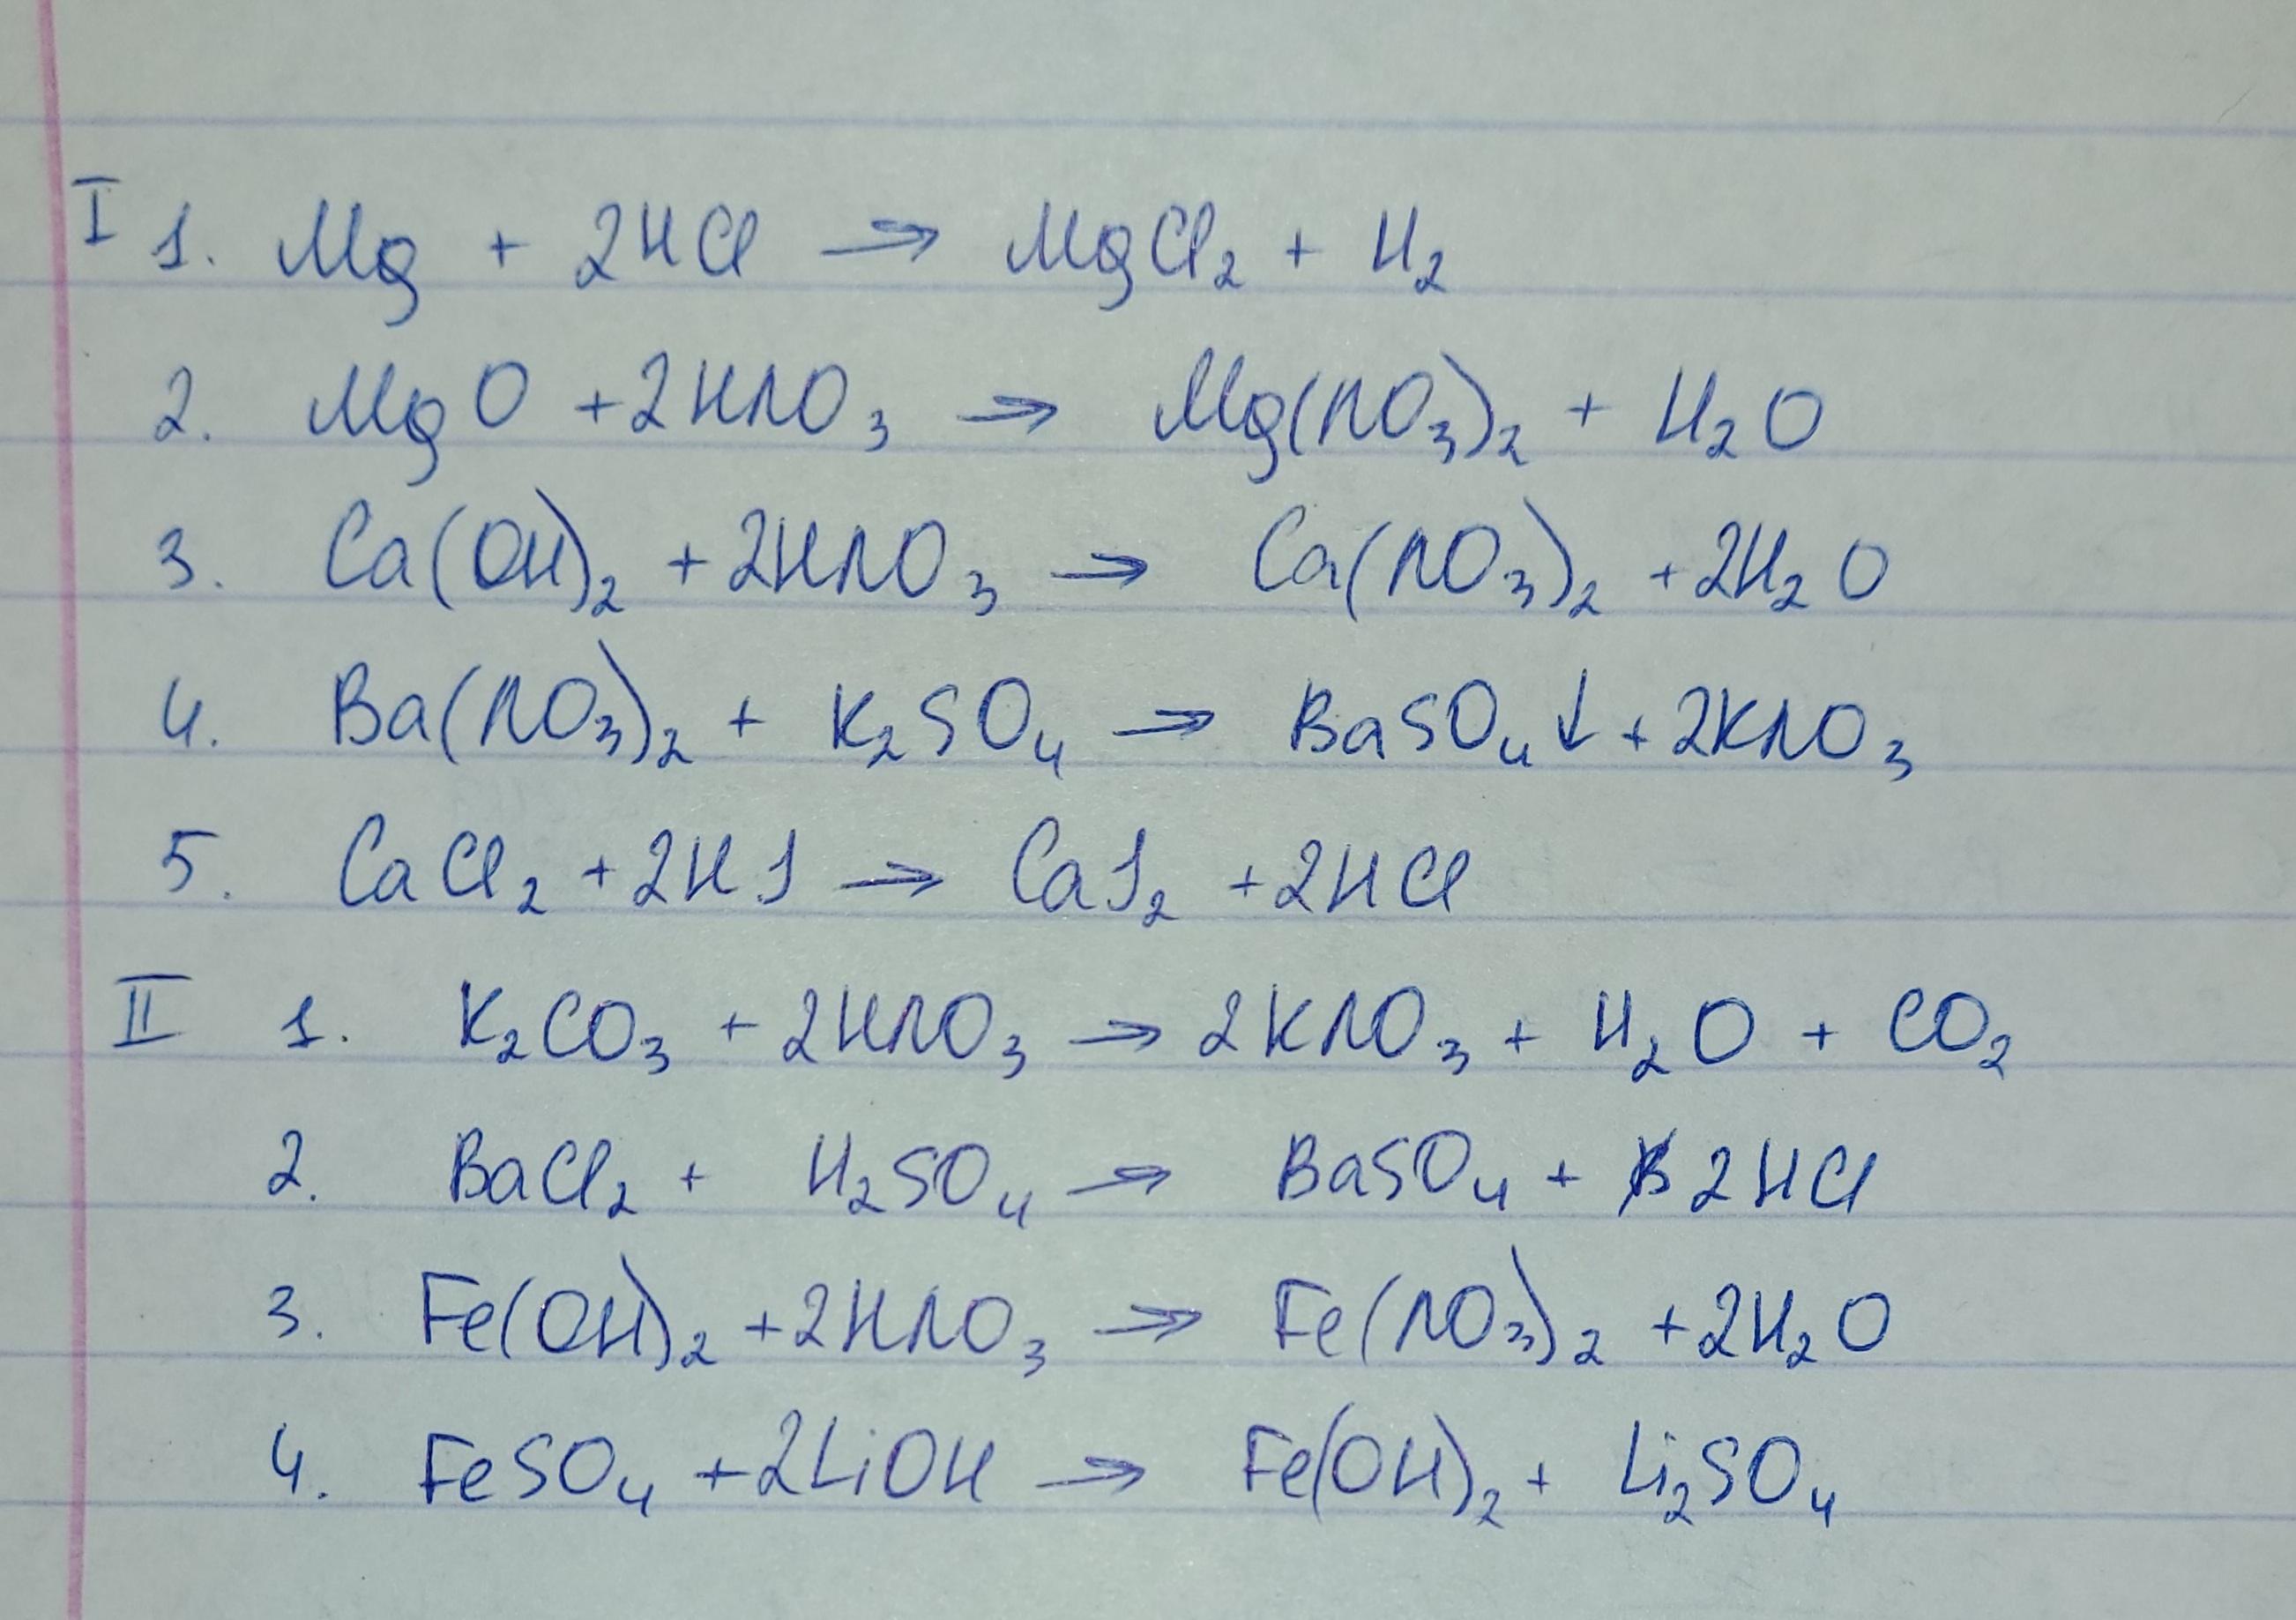 I 1. Mg + 2HCl → MgCl₂ + H₂
2. MgO + 2HNO₃ → Mg(NO₃)₂ + H₂O
3. Ca(OH)₂ + 2HNO₃ → Ca(NO₃)₂ + 2H₂O
4. Ba(NO₃)₂ + K₂SO₄ → BaSO₄↓ + 2KNO₃
5. CaCl₂ + 2HJ → CaJ₂ + 2HCl
II 1. K₂CO₃ + 2HNO₃ → 2KNO₃ + H₂O + CO₂
2. BaCl₂ + H₂SO₄ → BaSO₄ + 2HCl
3. Fe(OH)₂ + 2HNO₃ → Fe(NO₃)₂ + 2H₂O
4. FeSO₄ + 2LiOH → Fe(OH)₂ + Li₂SO₄